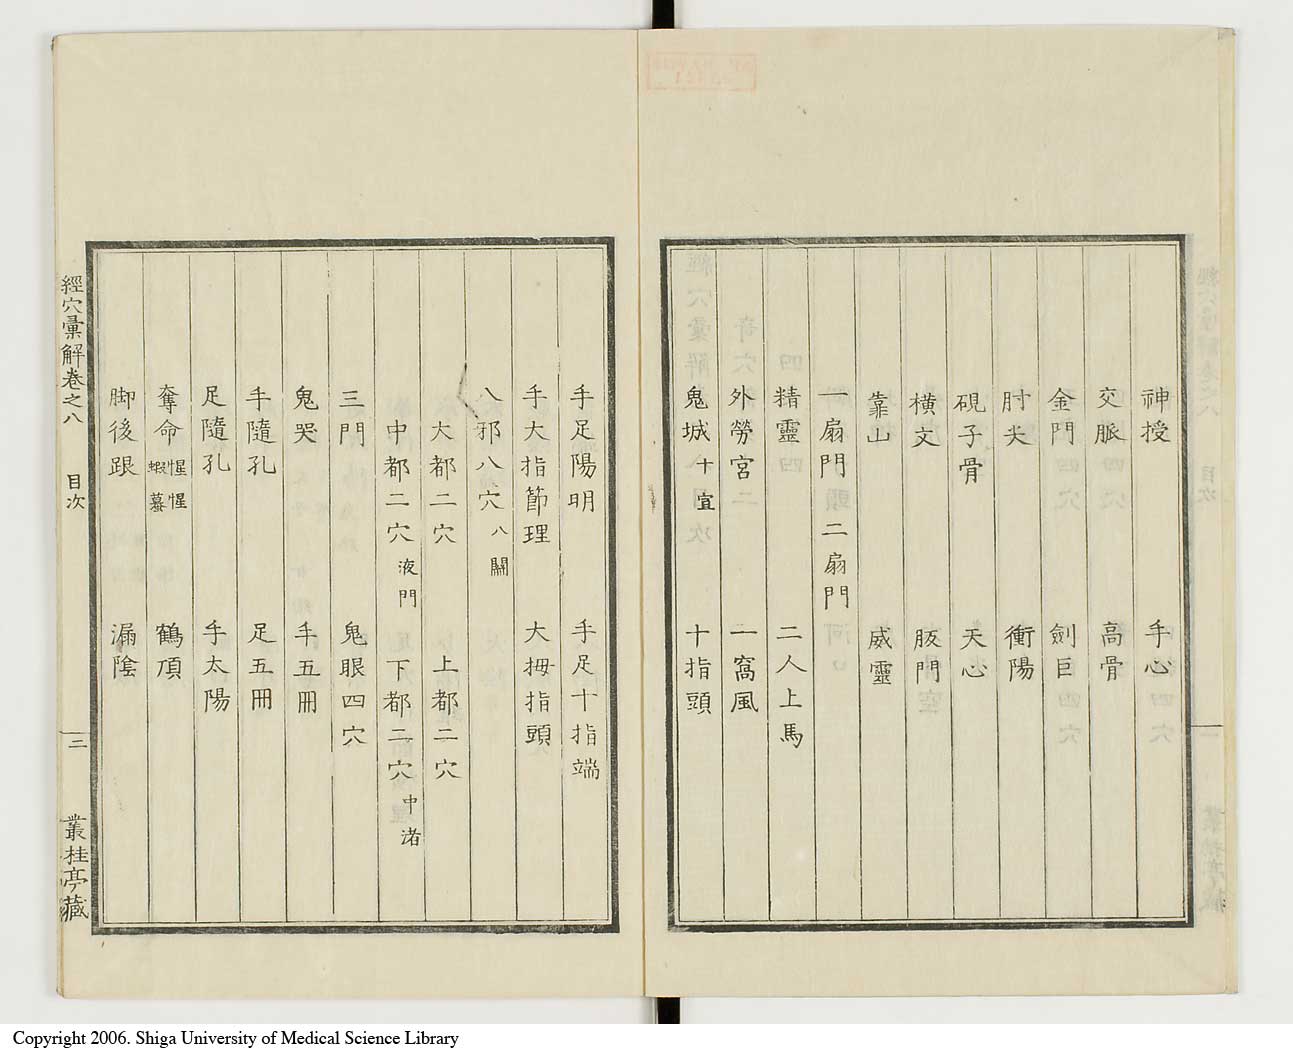 神授 手心
交脈 高骨
金門 劍巨
肘尖 衝陽
硯子骨 天心
橫文 肢門
靠山 威靈
一扇門 二扇門
精靈 二人上馬
外勞宮 一窩風
鬼城 十宣 十指頭
手足陽明 手足十指端
手大指節理 大拇指頭
八邪八穴 八關
大都二穴 上都二穴
中都二穴 液門 下都二穴 中渚
三門 鬼眼四穴
鬼哭 手五冊
手隨孔 足五冊
足隨孔 手太陽
奪命 惺惺 蝦蟇 鶴頂
脚後跟 漏陰
經穴彙解卷之八 目次 三 叢桂亭藏
Copyright 2006. Shiga University of Medical Science Library